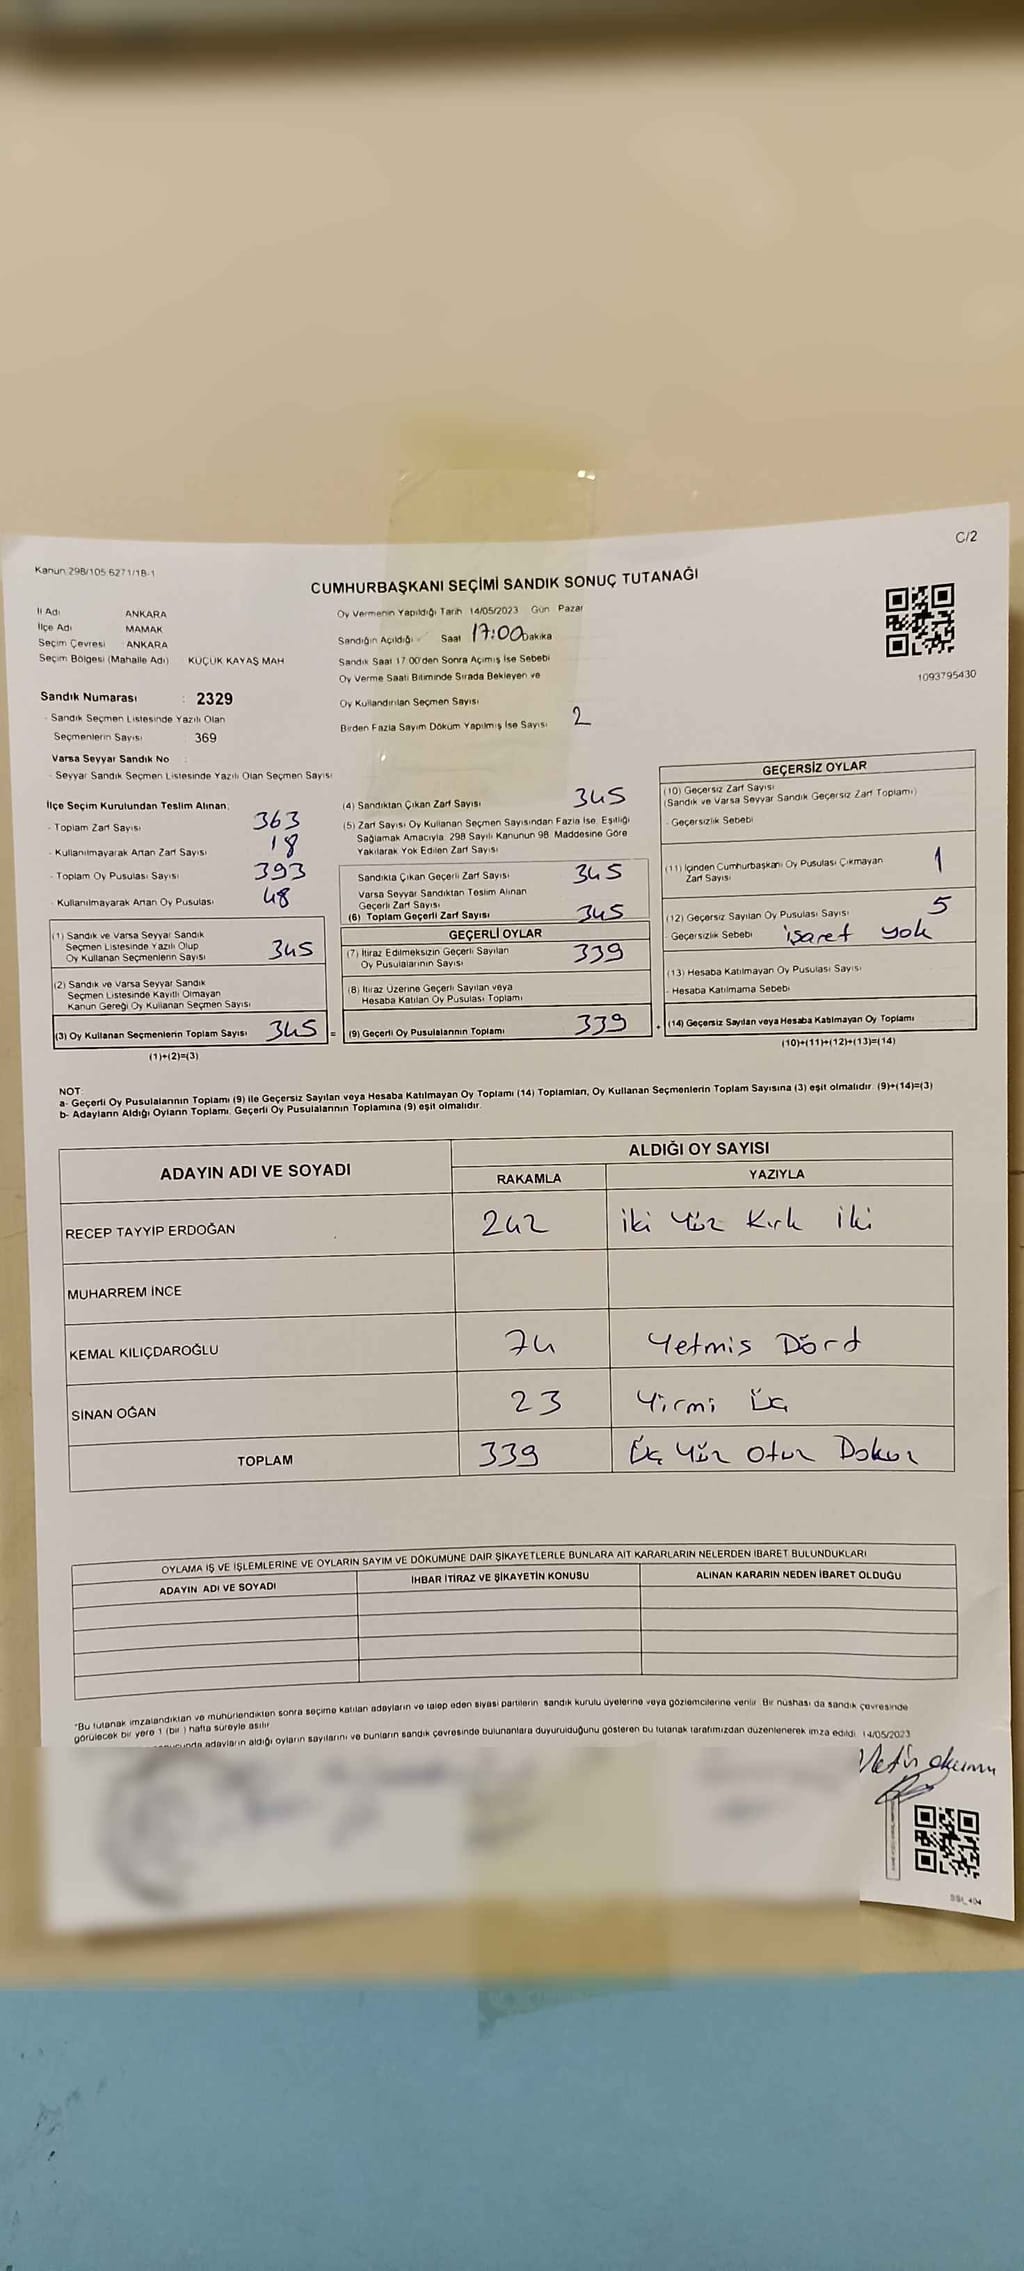 C/2
Kanun 298/105 6271/18-1
CUMHURBAŞKANI SEÇİMİ SANDIK SONUÇ TUTANAĞI
İl Adı ANKARA
İlçe Adı MAMAK
Seçim Çevresi : ANKARA
Seçim Bölgesi (Mahalle Adı) KÜÇÜK KAYAŞ MAH
Sandık Numarası : 2329
- Sandık Seçmen Listesinde Yazılı Olan
Seçmenlerin Sayısı 369
Varsa Seyyar Sandık No
- Seyyar Sandık Seçmen Listesinde Yazılı Olan Seçmen Sayısı
Oy Vermenin Yapıldığı Tarih 14/05/2023 Gün : Pazar
Sandığın Açıldığı Saat 17:00 Dakika
Sandık Saat 17 00'den Sonra Açımış İse Sebebi
Oy Verme Saati Bitiminde Sırada Bekleyen ve
Oy Kullandırılan Seçmen Sayısı
Birden Fazla Sayım Döküm Yapılmış İse Sayısı 2
1093795430
İlçe Seçim Kurulundan Teslim Alınan;
- Toplam Zarf Sayısı 363
- Kullanılmayarak Artan Zarf Sayısı 18
- Toplam Oy Pusulası Sayısı 393
- Kullanılmayarak Artan Oy Pusulası 48
(1) Sandık ve Varsa Seyyar Sandık
Seçmen Listesinde Yazılı Olup
Oy Kullanan Seçmenlerin Sayısı 345
(2) Sandık ve Varsa Seyyar Sandık
Seçmen Listesinde Kayıtlı Olmayan
Kanun Gereği Oy Kullanan Seçmen Sayısı
(3) Oy Kullanan Seçmenlerin Toplam Sayısı 345 =
(1)+(2)=(3)
(4) Sandıktan Çıkan Zarf Sayısı 345
(5) Zarf Sayısı Oy Kullanan Seçmen Sayısından Fazla İse, Eşitliği
Sağlamak Amacıyla, 298 Sayılı Kanunun 98. Maddesine Göre
Yakılarak Yok Edilen Zarf Sayısı
Sandıkta Çıkan Geçerli Zarf Sayısı 345
Varsa Seyyar Sandıktan Teslim Alınan
Geçerli Zarf Sayısı
(6) Toplam Geçerli Zarf Sayısı 345
GEÇERLİ OYLAR
(7) İtiraz Edilmeksizin Geçerli Sayılan
Oy Pusulalarının Sayısı 339
(8) İtiraz Üzerine Geçerli Sayılan veya
Hesaba Katılan Oy Pusulası Toplamı
(9) Geçerli Oy Pusulalarının Toplamı 339 +
GEÇERSİZ OYLAR
(10) Geçersiz Zarf Sayısı
(Sandık ve Varsa Seyyar Sandık Geçersiz Zarf Toplamı)
- Geçersizlik Sebebi
(11) İçinden Cumhurbaşkanı Oy Pusulası Çıkmayan
Zarf Sayısı 1
(12) Geçersiz Sayılan Oy Pusulası Sayısı 5
- Geçersizlik Sebebi işaret yok
(13) Hesaba Katılmayan Oy Pusulası Sayısı
- Hesaba Katılmama Sebebi
(14) Geçersiz Sayılan veya Hesaba Katılmayan Oy Toplamı
(10)+(11)+(12)+(13)=(14)
NOT:
a- Geçerli Oy Pusulalarının Toplamı (9) ile Geçersiz Sayılan veya Hesaba Katılmayan Oy Toplamı (14) Toplamları, Oy Kullanan Seçmenlerin Toplam Sayısına (3) eşit olmalıdır. (9)+(14)=(3)
b- Adayların Aldığı Oyların Toplamı, Geçerli Oy Pusulalarının Toplamına (9) eşit olmalıdır.
ADAYIN ADI VE SOYADI ALDIĞI OY SAYISI
RAKAMLA YAZIYLA
RECEP TAYYİP ERDOĞAN 242 iki yüz Kırk iki
MUHARREM İNCE
KEMAL KILIÇDAROĞLU 74 Yetmis Dört
SİNAN OĞAN 23 Yirmi Üç
TOPLAM 339 Üç Yüz Otuz Dokuz
OYLAMA İŞ VE İŞLEMLERİNE VE OYLARIN SAYIM VE DÖKÜMÜNE DAİR ŞİKAYETLERLE BUNLARA AİT KARARLARIN NELERDEN İBARET BULUNDUKLARI
ADAYIN ADI VE SOYADI İHBAR İTİRAZ VE ŞİKAYETİN KONUSU ALINAN KARARIN NEDEN İBARET OLDUĞU
*Bu tutanak imzalandıktan ve mühürlendikten sonra seçime katılan adayların ve talep eden siyasi partilerin sandık kurulu üyelerine veya gözlemcilerine verilir. Bir nüshası da sandık çevresinde
görülecek bir yere 1 (bir ) hafta süreyle asılır.
adayların aldığı oyların sayılarını ve bunların sandık çevresinde bulunanlara duyurulduğunu gösteren bu tutanak tarafımızdan düzenlenerek imza edildi. 14/05/2023